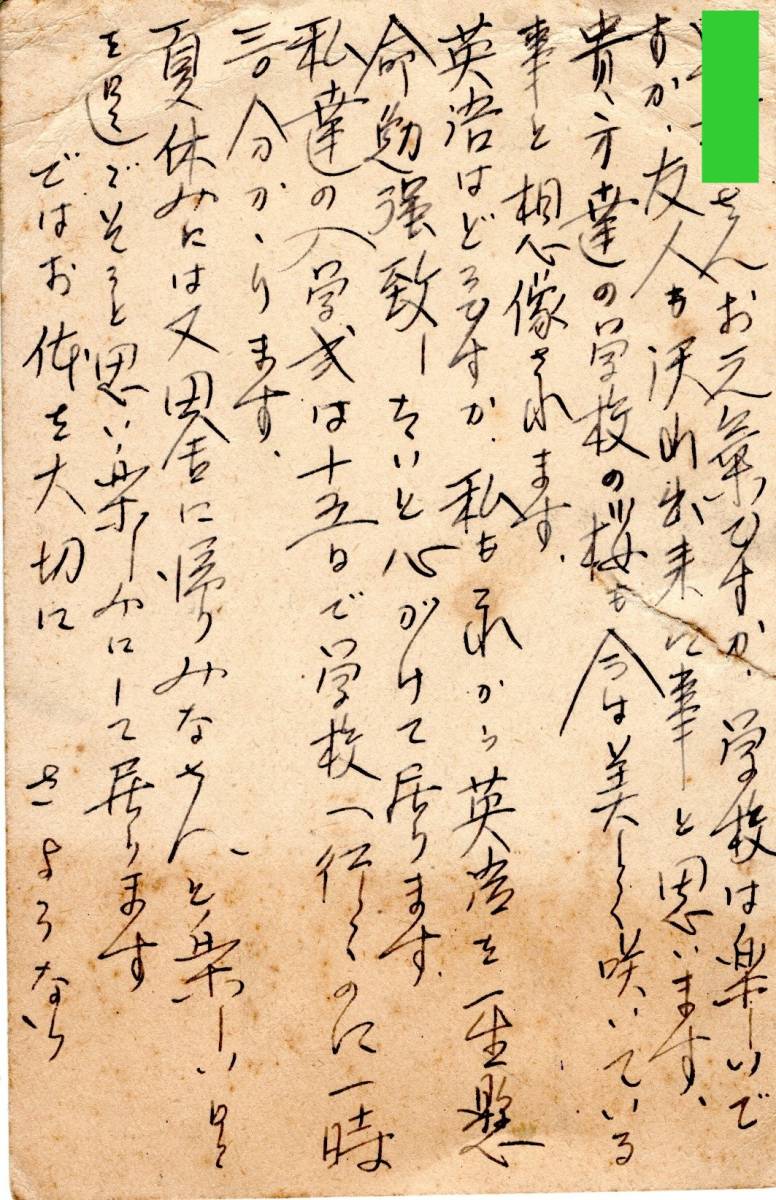 さんお元気ですか、学校は楽しいで
すか、友人も沢山出来た事と思います、
貴方達の学校の桜も今は美しく咲いている
事と想像されます、
英語はどうですか、私もこれから英語を一生懸
命勉強致したいと心がけて居ります、
私達の入学式は十五日で学校へ行くのに一時
三〇分かゝります、
夏休みには又田舎に帰りみなさんと楽しい日
を過ごそうと思い楽しみにして居ります
ではお体を大切に
さようなら